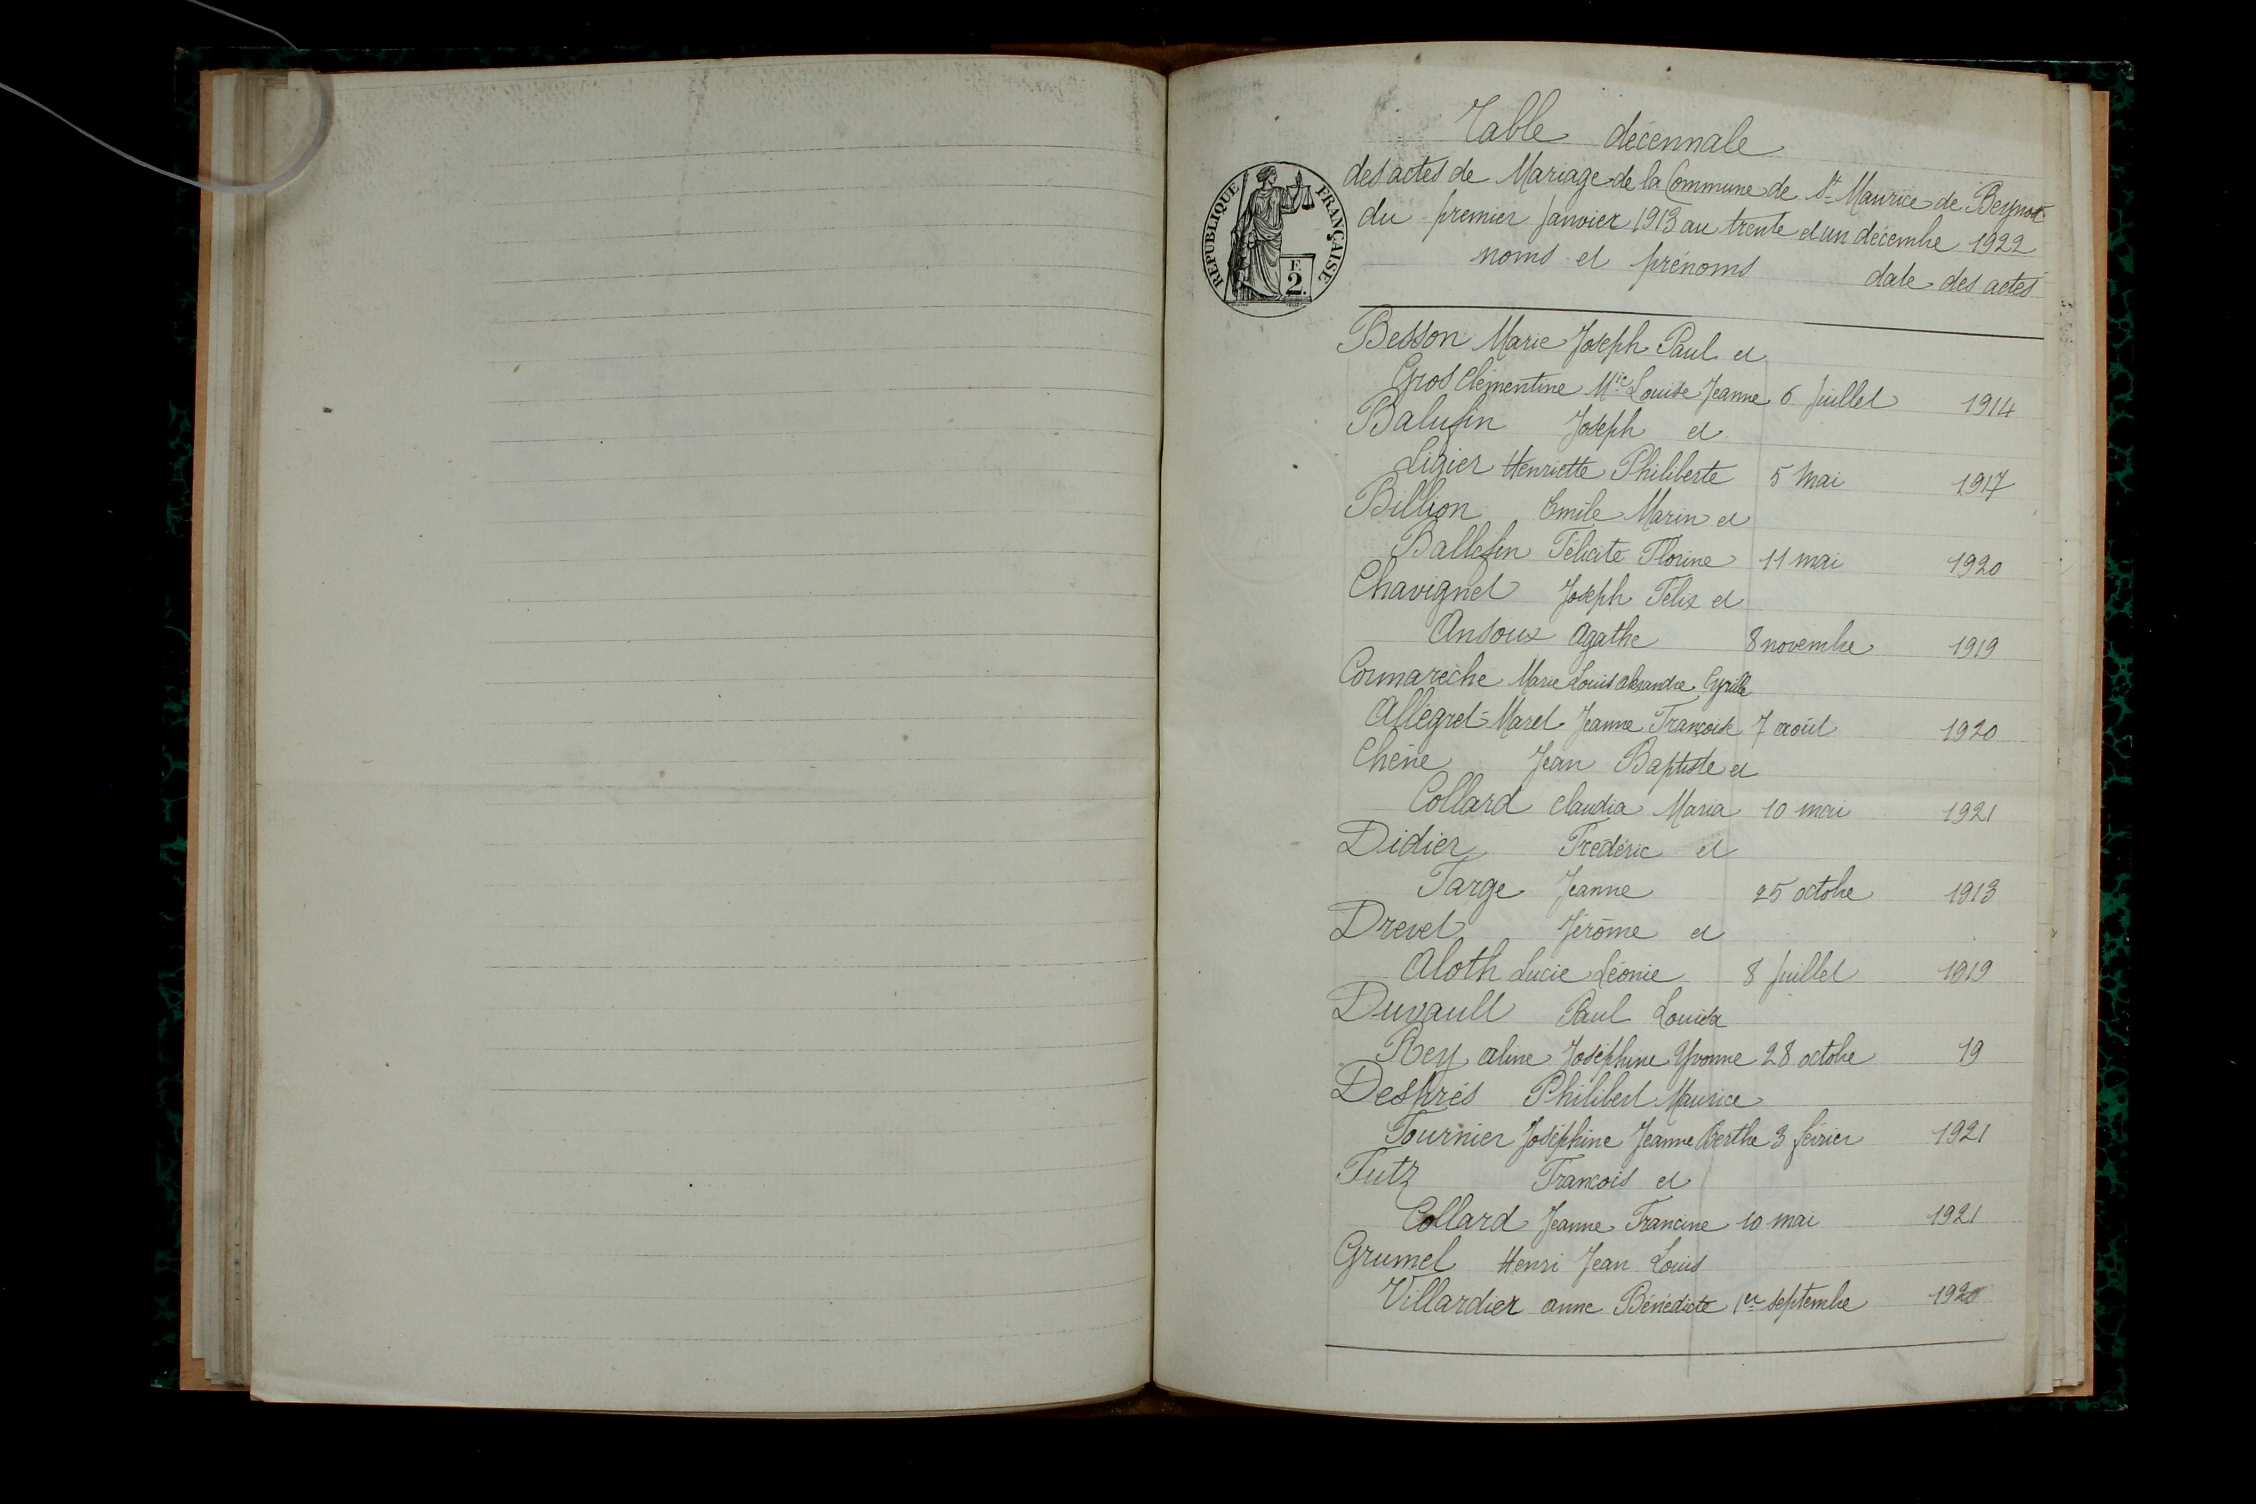 Table décennale
des actes de Mariage de la Commune de St Maurice de Beynost
du premier Janvier 1913 au trente et un décembre 1922
noms et prénoms date des actes
REPUBLIQUE FRANÇAISE
F.
2.
Besson Marie Joseph Paul et
Gros Clémentine Mie Louise Jeanne 6 Juillet 1914
Balufin Joseph et
Ligier Henriette Philiberte 5 Mai 1917
Billion Emile Marin et
Ballefin Félicité Florine 11 mai 1920
Chavignet Joseph Félix et
Ansoux Agathe 8 novembre 1919
Cormarèche Marie Louis Alexandre Cyrille
Allégret-Maret Jeanne Françoise 7 août 1920
Chêne Jean Baptiste et
Collard Claudia Maria 10 mai 1921
Didier Frédéric et
Targe Jeanne 25 octobre 1913
Drevet Jérôme et
Aloth Lucie Léonie 8 Juillet 1919
Duvault Paul Louis et
Rey Aline Joséphine Yvonne 28 octobre 19
Després Philibert Maurice
Fournier Joséphine Jeanne Berthe 3 février 1921
Futz François et
Collard Jeanne Francine 10 mai 1921
Grumel Henri Jean Louis
Villardier Anne Bénédicte 1er septembre 1920